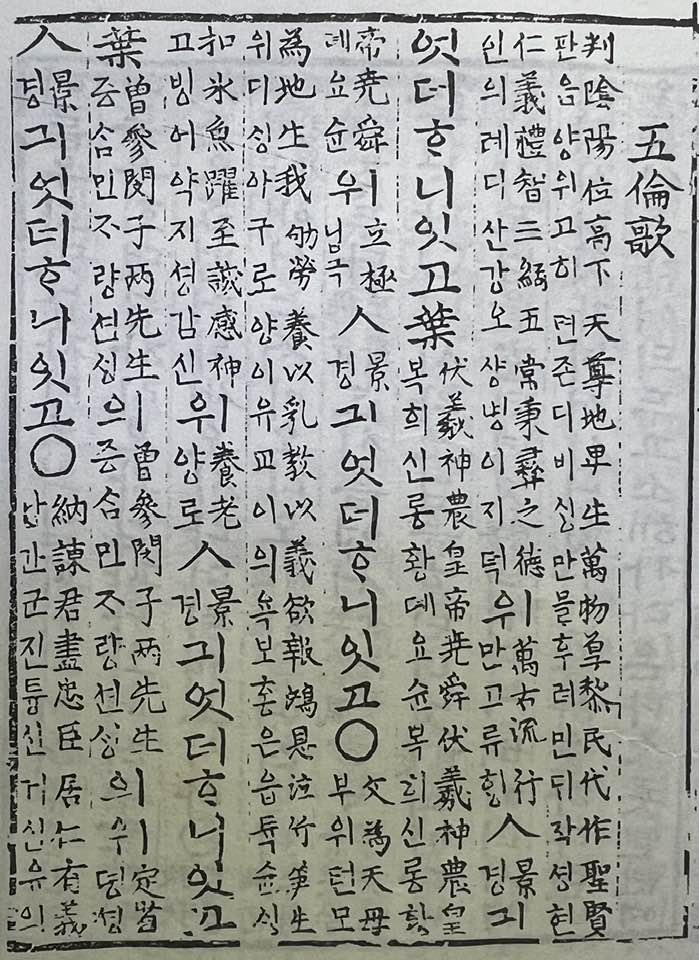 五倫歌
判陰陽位高下天尊地卑生萬物厚黎民代作聖賢
판음양위고하텬존디비싱만믈후려민ᄃᆡ작셩현
仁義禮智三綱五常秉彛之德위萬古流行ㅅ景긔
인의례디산강오샹병이지덕만고류힝경
엇더ᄒᆞ니잇고葉伏羲神農皇帝堯舜伏羲神農皇
복희신롱황뎨요슌복희신롱황
帝堯舜위立極ㅅ景긔엇더ᄒᆞ니잇고○父為天母
뎨요슌닙극경부위텬모
為地生我劬勞養以乳教以義欲報鴻恩泣竹笋生
위디싱아구로양이유교이의욕보홍은읍듁슌싱
扣氷魚躍至誠感神위養老ㅅ景긔엇더ᄒᆞ니잇고
고빙어약지셩감신양로경
葉曾參閔子兩先生의曾參閔子兩先生의위定省
증ᄉᆞᆷ민ᄌᆞ량션싱증ᄉᆞᆷ민ᄌᆞ량션싱뎡셩
ㅅ景긔엇더ᄒᆞ니잇고○納諫君盡忠臣居仁有義
경난간군진튱신거인유의